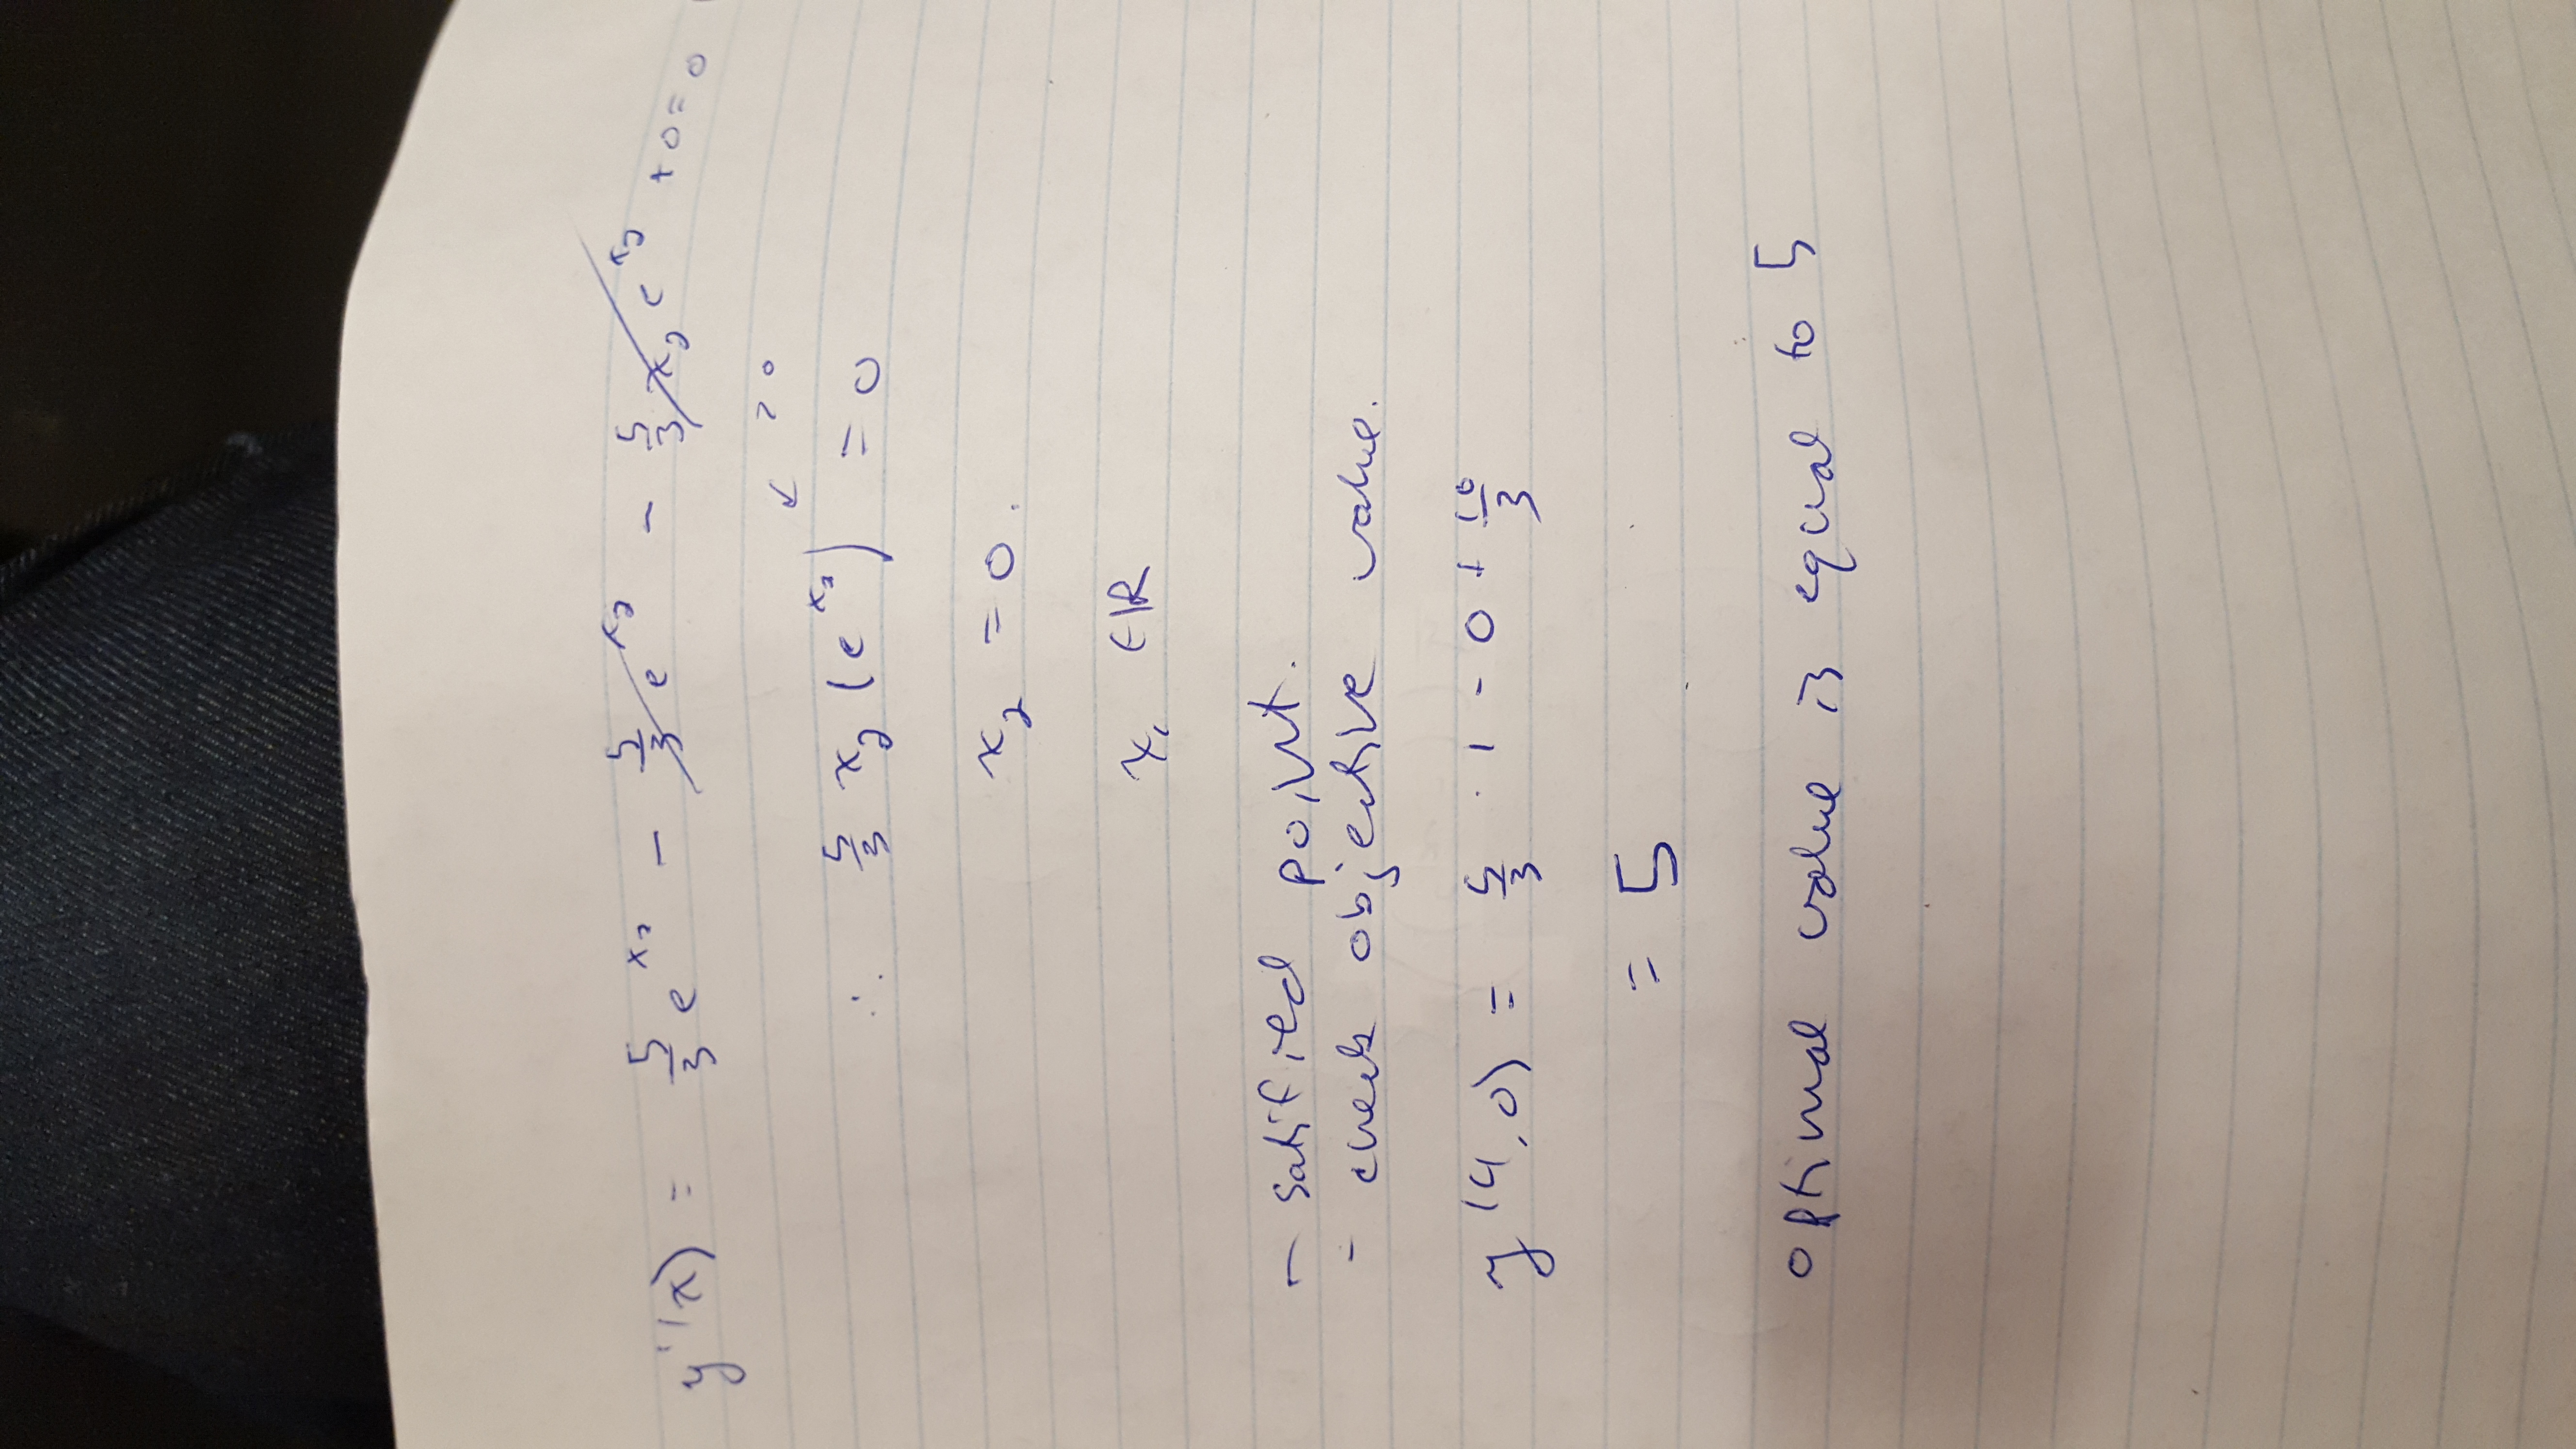 y'(x) = 5/3 e^x₂ - 5/3 e^x₂ - 5/3 x₂ e^x₂ + 0 = 0
↙ > 0
∴ 5/3 x₂ (e^x₂) = 0
x₂ = 0.
x₁ ∈ ℝ
- satified point.
- check objective value.
y(4,0) = 5/3 · 1 - 0 + 10/3
= 5
optimal value is equal to 5